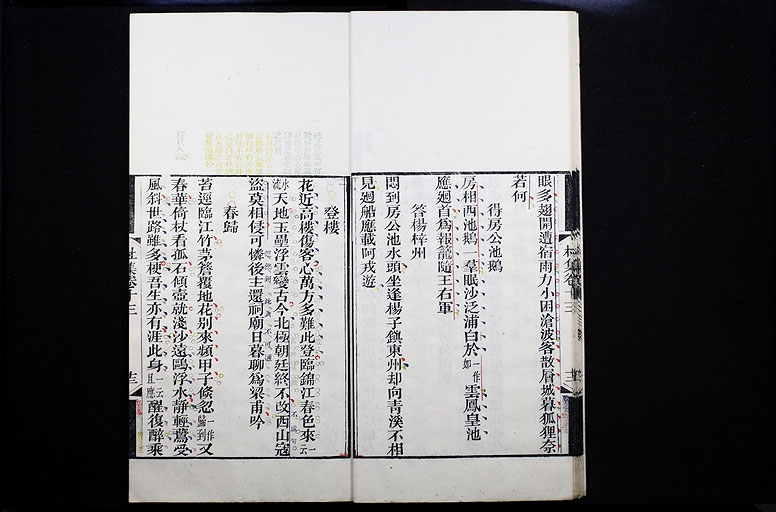 眼多翅開遭宿雨力小困滄波客散層城暮狐狸奈
若何
得房公池鵝
房相西池鵝一羣眠沙泛浦白於一作如雲鳳皇池
應廻首爲報籠隨王右軍
答楊梓州
悶到房公池水頭坐逢楊子鎮東州却向青溪不相
見廻船應載阿戎遊
杜集卷十三
登樓
花近高樓傷客心萬方多難此登臨錦江春色來一云
水流天地玉壘浮雲變古今北極朝廷終不改西山寇
盜莫相侵可憐後主還祠廟日暮聊爲梁甫吟
春歸
苔逕臨江竹茅簷覆地花別來頻甲子倏忽一作歸到又
春華倚杖看孤石傾壺就淺沙遠鷗浮水靜輕燕受
風斜世路雖多梗吾生亦有涯此身一云且應醒復醉乘
杜集卷十三